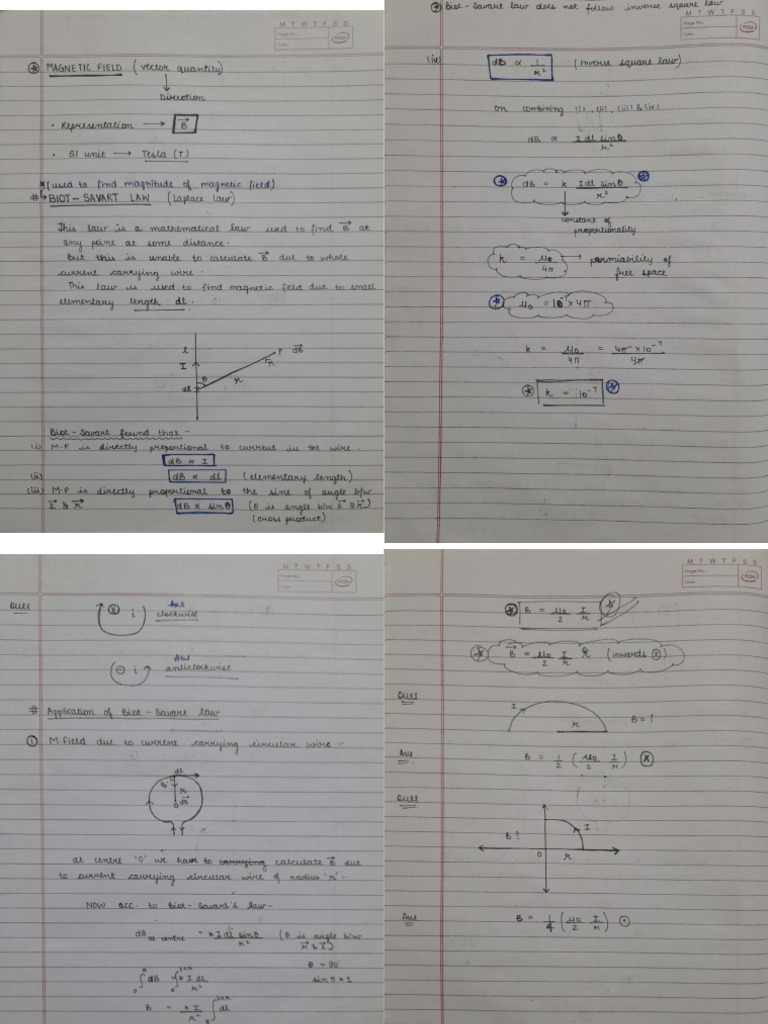 M T W T F S S
MAGNETIC FIELD (vector quantity)
Direction
• Representation → B⃗
• SI unit → Tesla (T)
(used to find magnitude of magnetic field)
# BIOT-SAVART LAW (Laplace Law)
This law is a mathematical law used to find B⃗ at
any point at some distance.
But this is unable to calculate B⃗ due to whole
current carrying wire.
This law is used to find magnetic field due to small
elementary length dl.
l
I
P dB⃗
θ
r
dl
Biot-Savart found that -
(i) M.F is directly proportional to current in the wire.
dB ∝ I
(ii) dB ∝ dl (elementary length)
(iii) M.F is directly proportional to the sine of angle b/w
dB ∝ sinθ (θ is angle b/w
(cross product)
Biot-Savart law does not follow inverse square law
M T W T F S S
(iv) dB ∝ 1/r² (inverse square law)
On combining (i), (ii), (iii) & (iv)
dB ∝ I dl sinθ / r²
dB = k Idl sinθ / r²
constant of
proportionality
k = μ₀/4π → permiability of
free space
μ₀ = 10⁻⁷ × 4π
k = μ₀/4π = 4π × 10⁻⁷/4π
k = 10⁻⁷
M T W T F S S
Ques
ⓧ i
clockwise
⊙ i
anticlockwise
# Application of Biot-Savart law
① M.Field due to current carrying circular wire :-
dl
r
O
at centre 'O' we have to carrying calculate B⃗ due
to current carrying circular wire of radius 'r'.
NOW acc. to Biot-Savart's law-
dB at centre = k I dl sinθ / r² (θ is angle b/w
θ = 90°
∫dB = ∫ k I dl / r² sinθ = 1
B = k I / r² ∫ dl
M T W T F S S
B = μ₀/2 I/r
B⃗ = μ₀/2 I/r (inwards ⓧ)
Ques
I
r
B = ?
Ans
B = 1/2 (μ₀/2 I/r) ⓧ
Ques
B?
I
O
r
Ans
B = 1/4 (μ₀/2 I/r) ⊙